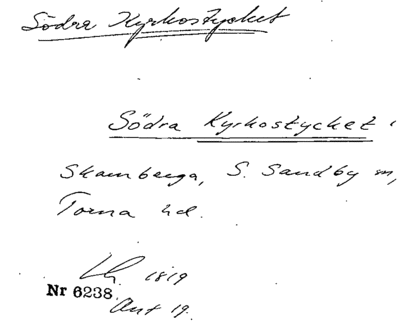 Södra Kyrkostycket
Södra Kyrkostycket i
Skamberga, S. Sandby m,
Torna hd.
Lh. 1819
Nr 6238.
Akt 19.